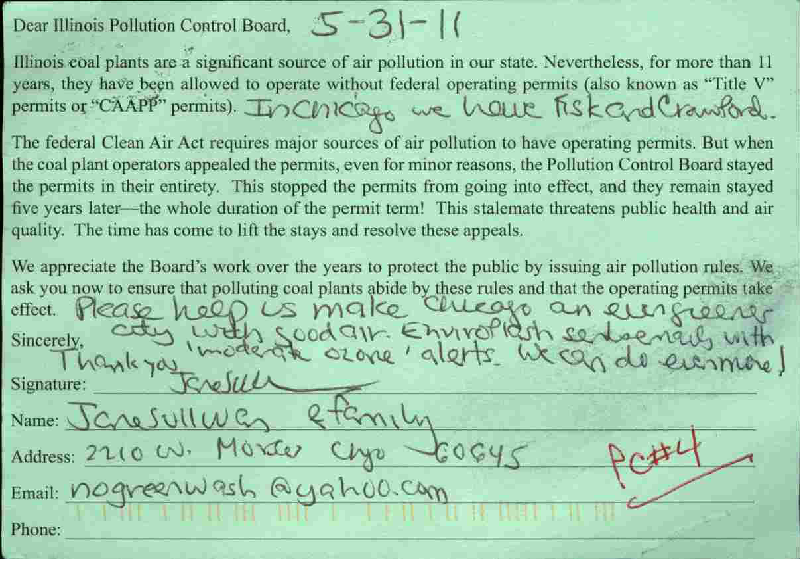 Dear Illinois Pollution Control Board, 5-31-11
Illinois coal plants are a significant source of air pollution in our state. Nevertheless, for more than 11
years, they have been allowed to operate without federal operating permits (also known as “Title V”
permits or “CAAPP” permits). In Chicago we have Fisk and Crawford.
The federal Clean Air Act requires major sources of air pollution to have operating permits. But when
the coal plant operators appealed the permits, even for minor reasons, the Pollution Control Board stayed
the permits in their entirety. This stopped the permits from going into effect, and they remain stayed
five years later—the whole duration of the permit term! This stalemate threatens public health and air
quality. The time has come to lift the stays and resolve these appeals.
We appreciate the Board's work over the years to protect the public by issuing air pollution rules. We
ask you now to ensure that polluting coal plants abide by these rules and that the operating permits take
effect. Please help us make Chicago an evergreener
Sincerely, city with good air. Enviroflash sends emails with
Thank you 'moderate ozone' alerts. We can do even more!
Signature: Jane Sull
Name: Jane Sullivan & family
Address: 2210 W. Chgo 60645
Email: nogreenwash@yahoo.com
PC#4
Phone: